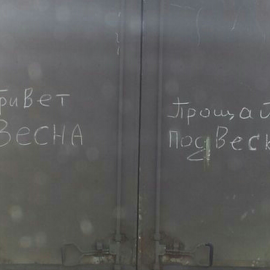 Привет
ВЕСНА
Прощай
Подвеск